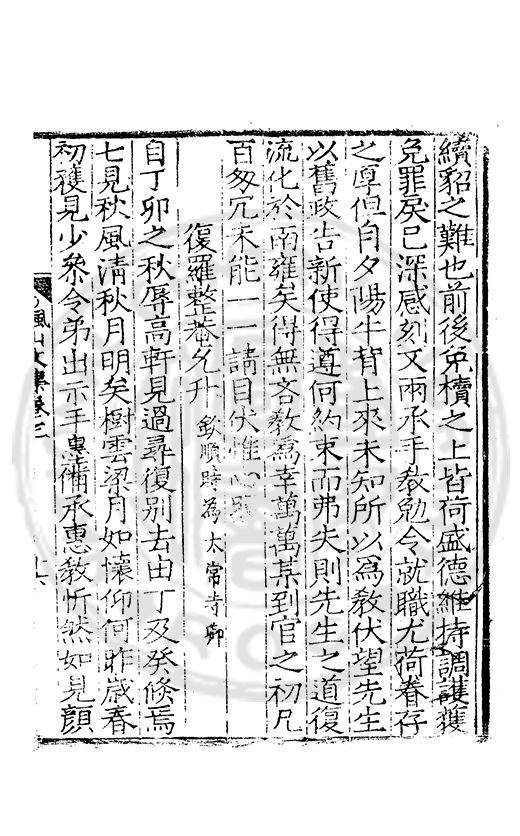 續貂之難也前後免櫝之上皆荷盛德維持調護獲
免罪戾已深感刻又兩承手教勉令就職尤荷眷存
之厚但自夕陽牛背上來未知所以為教伏望先生
以舊政告新使得遵何約束而弗失則先生之道復
流化於南雍矣得無吝教為幸萬萬某到官之初凡
百匆冗未能一一請目伏惟心
復羅整菴允升 欽順時為太常寺卿
自丁卯之秋辱高軒見過尋復別去由丁及癸倏焉
七見秋風清秋月明矣樹雲梁月如懷仰何昨歲春
初獲見少參令弟出示手畢備承惠教忻然如見顏
楓山文集卷二